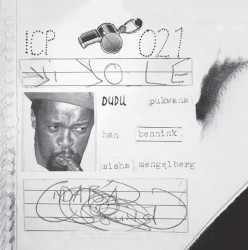 ICP 021
Yi YO LE
DUDU pukwana
han bennink
misha mengelberg
NDABA